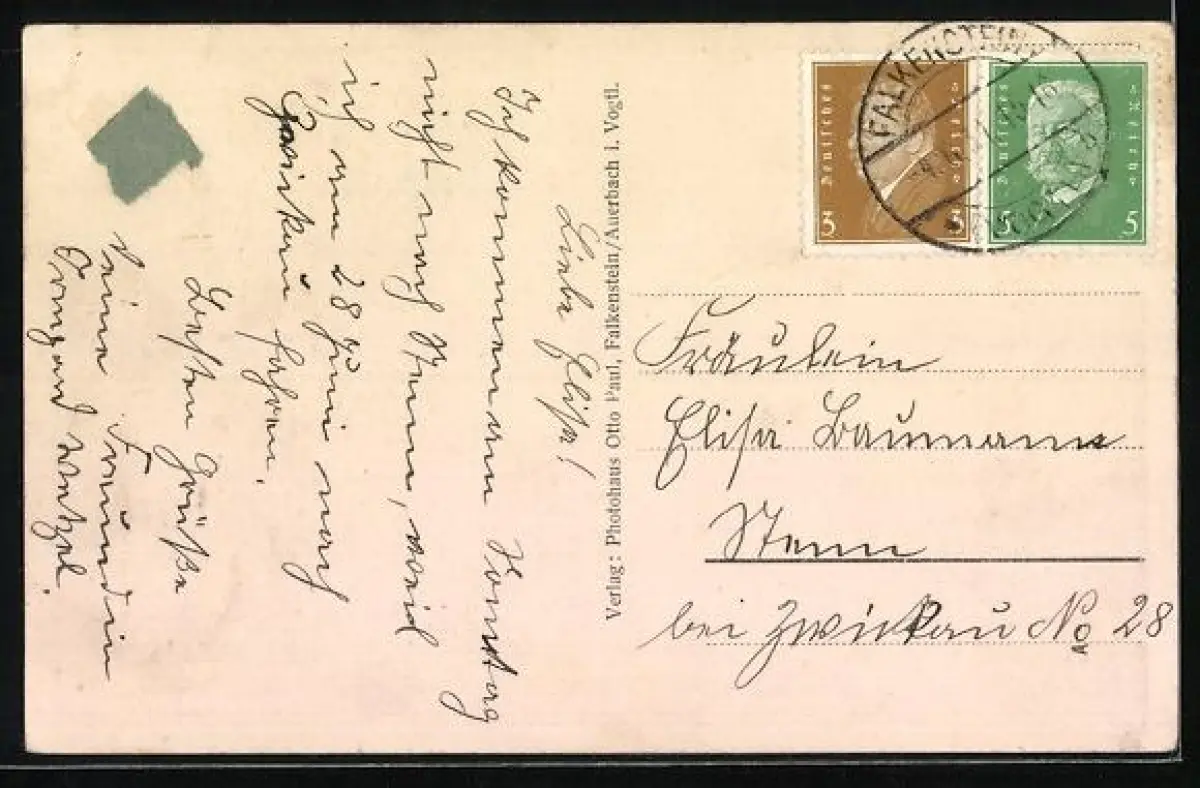 Liebe Elisa!
Ich komme am Sonntag
nicht nach Stenn, weil
ich am 28 Juni nach
Zwickau fahren.
Besten Grüße
deine Freundin
Irmgard Wetzel.
Verlag: Photohaus Otto Paul, Falkenstein/Auerbach i. Vogtl.
FALKENSTEIN
Deutsches Reich
3 3
Deutsches Reich
5 5
Fräulein
Elisa Baumann
Stenn
bei Zwickau No 28